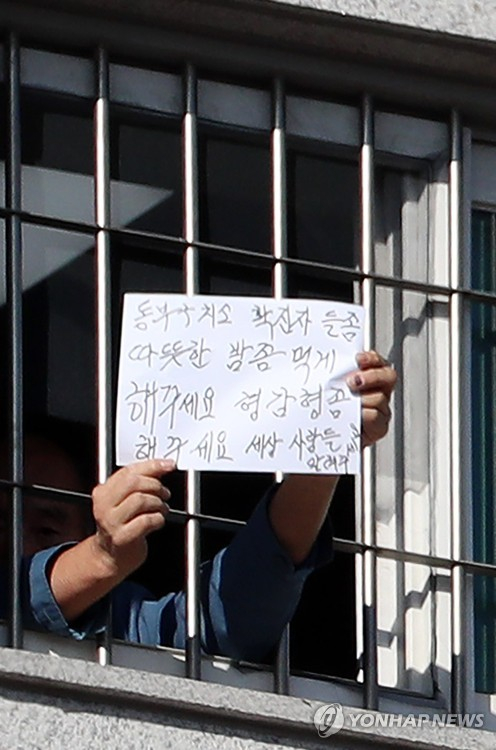 동부구치소 확진자 들좀
따뜻한 밤좀 먹게
해주세요 형감형좀
해 주세요 세상 사람들
YONHAP NEWS